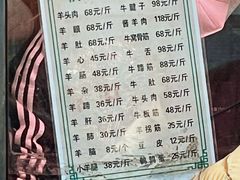 羊头肉 68元/斤 牛腱子 98元/斤
羊眼 68元/斤 酱羊肉 118元/斤
羊肚 68元/斤 牛窝骨筋
羊心 45元/斤 牛舌 98元/斤
羊肠 48元/斤 牛筋 88元/斤
羊杂 38元/斤 牛肚 68元/斤
羊蹄 36元/斤 牛头肉 58元/斤
羊肝 36元/斤 牛板筋 58元/斤
羊肺 30元/斤 羊拐筋 35元/斤
羊脑 8元/个 豆皮 12元/斤
小羊腿 38元/斤 25元/斤